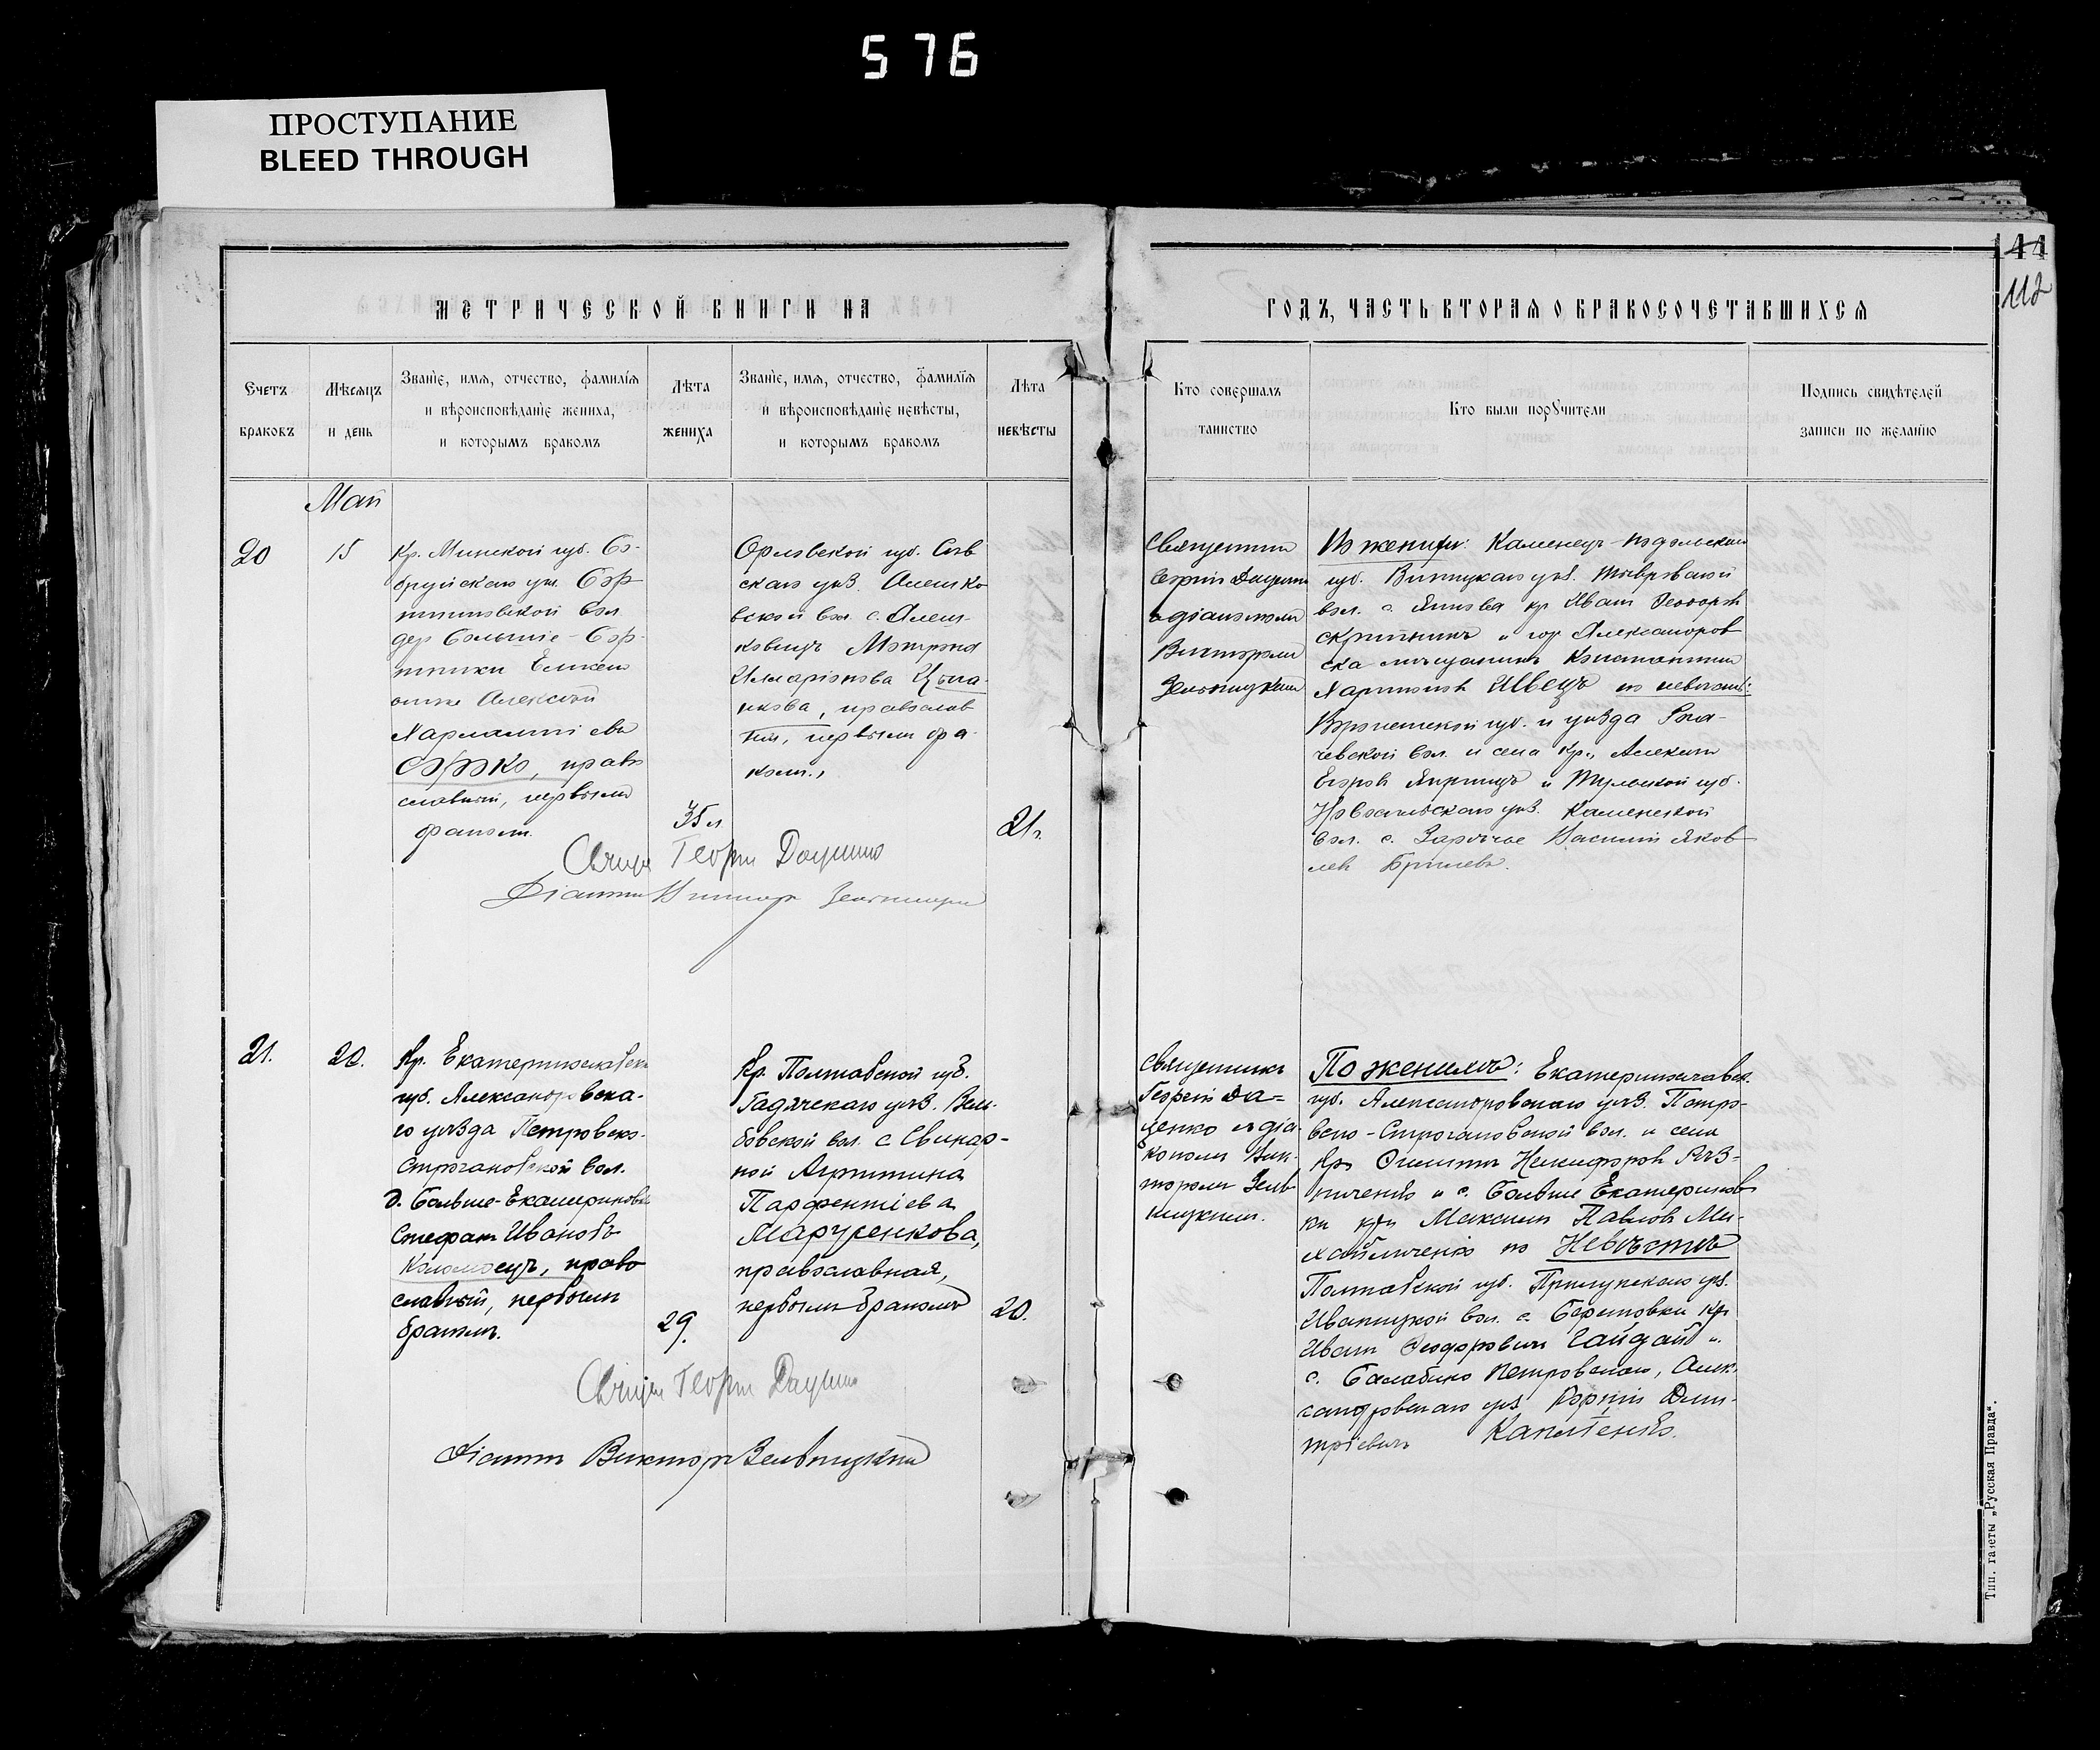 576
ПРОСТУПАНИЕ
BLEED THROUGH
44
112
МЕТРИЧЕСКОЙ КНИГИ НА
ГОДЪ, ЧАСТЬ ВТОРАЯ О БРАКОСОЧЕТАВШИХСЯ
Счетъ
браковъ
Мѣсяцъ
и день
Званїе, имя, отчество, фамилїя
и вѣроисповѣданїе жениха,
и которымъ бракомъ
Лѣта
жениха
Званїе, имя, отчество, фамилїя
и вѣроисповѣданїе невѣсты,
и которымъ бракомъ
Лѣта
невѣсты
Кто совершалъ
таинство
Кто были порꙋчители
Подпись свидѣтелей
записи по желанїю
Май
20
15
Кр. Минской губ. Бо-
бруйскаго уѣз.
вол
дер Большіе -
Алексѣй
Харлампіевъ
Бобко, право
славный, первымъ
бракомъ.
35 л
Орловской губ. Сѣв
скаго уѣз. Алешко
вской вол. с. Алеш-
ковичъ Матрона
Илларіонова Цыга
нкова, православ
ная, первымъ бра-
комъ.
21 г.
Священникъ
Георгій Даценко
съ діакономъ
Викторомъ
Зельницкимъ
По женихѣ: Каменецъ-подольской
губ. Винницкаго уѣз. Тывровской
вол. с. кр Иванъ Ѳеодоровъ
и гор Александров
ска мѣщанинъ Константинъ
Харитоновъ Швецъ по невѣстѣ:
Воронежской губ. и уѣзда Рога-
чевской вол. и села кр., Алексѣй
Егоровъ и Тульской губ.
Новосильскаго уѣз. Каменской
вол. с. Заречье Василій Яков
левъ
Свящ. Георгій Даценко
Діаконъ Викторъ Зельницкій
21.
20.
Кр. Екатеринославской
губ. Александровска-
го уѣзда Петровско-
Строгановской вол.
д. Больше-Екатериновки
Стефанъ Ивановъ
Коломоецъ, право
славный, первымъ
бракомъ.
29.
Кр. Полтавской губ.
Гадячскаго уѣз. Вель-
бовской вол. с Свинар-
ной Агриппина
Парфентіева
Марусенкова,
православная,
первымъ бракомъ
20.
Священникъ
Георгій Да=
ценко съ діа-
кономъ Вик-
торомъ Зель
ницкимъ.
По женихѣ: Екатеринославск.
губ. Александровскаго уѣз. Петро-
вско-Строгановской вол. и села
Кр. Филиппъ Никифоровъ Рѣз-
ниченко и с. Больше Екатеринов
ки кр Максимъ Павловъ Ми-
хайличенко по Невѣстѣ
Полтавской губ. Прилукскаго уѣз.
Иваницкой вол. с. Березовки Кр
Иванъ Ѳеодоровичъ Гайдай и
с. Балабино Петровское, Алек-
сандровскаго уѣз Георгій Дми-
тріевичъ
Свящ. Георгій Даценко
Діаконъ Викторъ Зельницкій
Тип. газеты „Русская Правда".